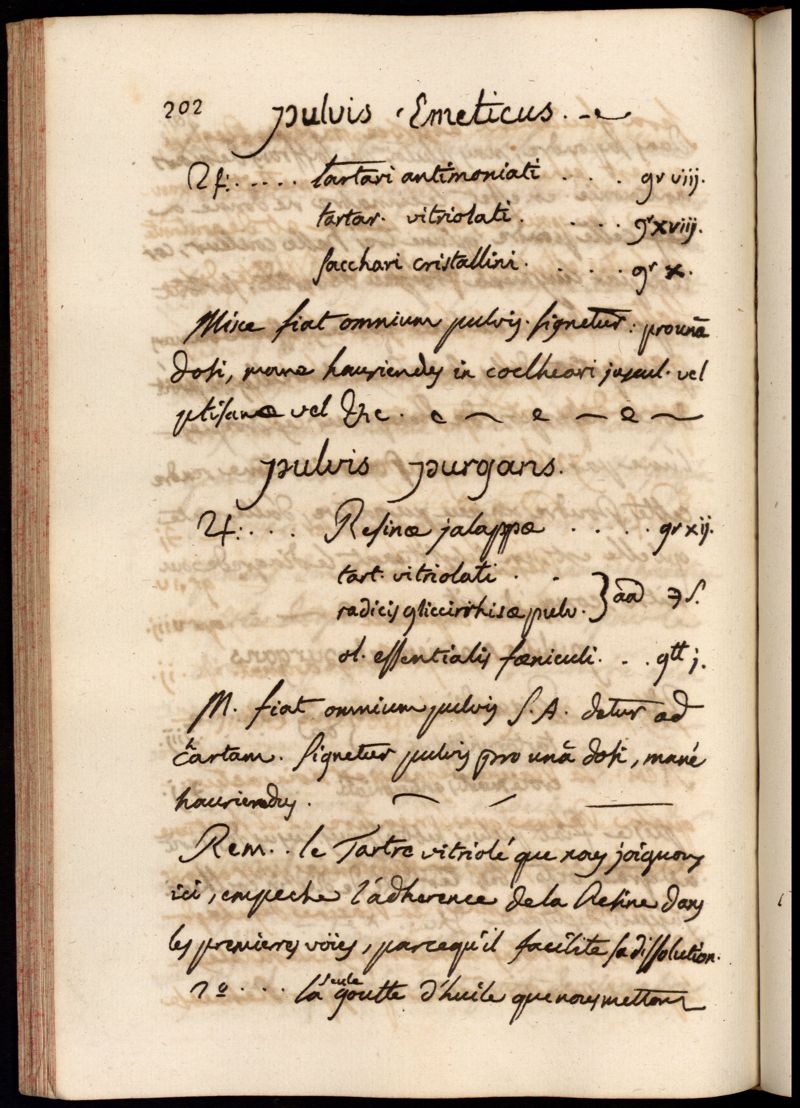 202
pulvis Emeticus.
♃: .... tartari antimoniati . . . gr viij.
tartar. vitriolati. . . . . gr xviij.
sacchari cristallini. . . . . gr x.
Misce fiat omnium pulvis. signetur: pro unâ
dosi, mane hauriendus in coclheari juscul. vel
ptisanæ vel Thé.
pulvis purgans.
♃: . . . Resinæ jalappæ . . . . . gr xij.
tart. vitriolati . .
radicis gliccirrhisæ pulv. } aad ℈ s.
ol. essentialis fæniculi. . . gtt j.
M. fiat omnium pulvis S. A. detur ad
chartam. signetur pulvis pro unâ dosi, mané
hauriendus.
Rem. . le Tartre vitriolé que nous joignons
ici, empeche l'ádherence de la Resine dans
les premieres voïes, parcequ'il facilite sa dissolution.
2º . . . la seule goutte d'huile que nous mettons